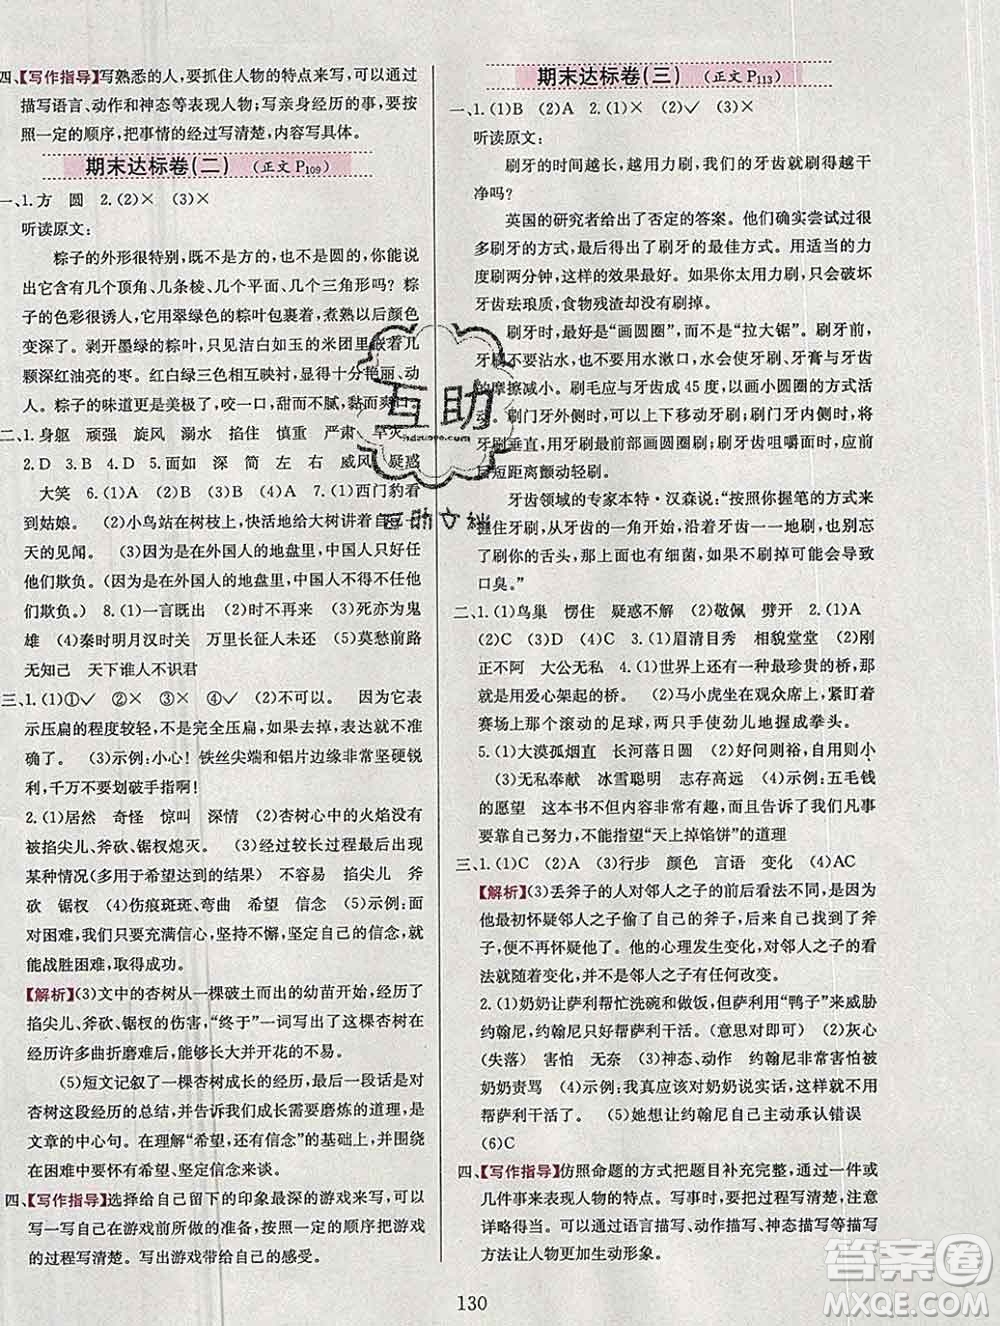 四、【写作指导】写熟悉的人,要抓住人物的特点来写,可以通过
描写语言、动作和神态等表现人物;写亲身经历的事,要按
照一定的顺序,把事情的经过写清楚、内容写具体。
期末达标卷(二) (正文 P109)
一、1.方 圆 2.(2)× (3)×
听读原文:
粽子的外形很特别,既不是方的,也不是圆的,你能说
出它们有几个顶角、几条棱、几个平面、几个三角形吗?粽
子的色彩很诱人,它用翠绿色的粽叶包裹着,煮熟以后颜色
变深了。剥开墨绿的粽叶,只见洁白如玉的米团里嵌着几
颗深红油亮的枣。红白绿三色相互映衬,煞是十分精致、可
人。粽子的味道更是美极了,咬一口,甜而不腻,黏而爽口。
二、1.身躯 顽强 旋风 溺水 掐住 慎重 严肃 旱灾
2.D 3.B 4.D 5.面如 深 简 左 右 威风 疑惑
大笑 6.(1)D (2)C (3)B (4)A 7.(1)西门豹看
到姑娘。 (2)小鸟站在树枝上,快活地给大树讲着自
天的见闻。 (3)因为是在外国人的地盘里,中国人只好任
他们欺负。(因为是在外国人的地盘里,所以中国人只好任
他们欺负。) 8.(1)一言既出 (2)时不再来 (3)死亦为鬼
雄 (4)秦时明月汉时关 万里长征人未还 (5)莫愁前路
无知己 天下谁人不识君
三、1.(1)①✓ ②× ③× ④✓ (2)不可以。 因为它表
示压扁的程度较轻,不是完全压扁,如果去掉,表达就不具
体、不准确了。 (3)示例:小心!铁丝尖端和铝片边缘非常坚硬锐
利,千万不要划破手指啊!
2.(1)居然 奇怪 惊叫 深情 (2)杏树心中的火焰没有
被掐尖儿、斧砍、锯杈熄灭。 (3)经过较长过程最后出现
某种情况(多用于希望达到的结果) 不容易 掐尖儿 斧
砍 锯杈 (4)伤痕斑斑、弯曲 希望 信念 (5)示例:面
对困难,我们只要充满信心,坚持不懈,坚定自己的信念,就
能战胜困难,取得成功。
【解析】(3)文中的杏树从一棵破土而出的幼苗开始,经历了
掐尖儿、斧砍、锯杈的伤害,“终于”一词写出了这棵杏树在
经历许多曲折磨难后,能够长大并开花的不易。
(5)短文记叙了一棵杏树成长的经历,最后一段话是对
杏树经历的总结,并告诉我们要多经磨炼的道理,是
文章的中心句。在理解“希望,还有信念”的基础上,扣住不怕
困难、坚定信念来谈。
四、【写作指导】选择给自己留下的印象最深的游戏来写,可以
写一写自己在游戏前所做的准备,按照一定的顺序,把游戏
的过程写清楚。写出游戏带给自己的感受。
期末达标卷(三) (正文 P113)
一、1.(1)B (2)A 2.(1)× (2)✓ (3)×
听读原文:
刷牙的时间越长,越用力刷,我们的牙齿就刷得越干
净吗?
英国的研究者给出了否定的答案。他们确实尝试过很
多刷牙的方式,最后得出了刷牙的最佳方式。用适当的力
度刷两分钟,这样的效果最好。如果你太用力刷,只会破坏
牙齿珐琅质,食物残渣却没有刷掉。
刷牙时,最好是“画圆圈”,而不是“拉大锯”。刷牙前,
牙刷不要沾水,也不要用水漱口,以免牙膏变稀,与牙齿
的摩擦减小。刷毛应与牙齿成45度,以画小圆圈的方式活动
牙刷。刷牙外侧时,以上下移动牙刷;刷门牙内侧时,
用牙刷最前部画圆圈刷;刷牙齿咀嚼面时,
短距离颤动轻刷。
牙齿领域的专家本特·汉森说:“按照你握笔的方式来
握住牙刷,从牙齿的一角开始,沿着一一地刷,也别忘
了刷你的舌头,那里也有细菌,如果不刷掉可能会导致
口臭。”
二、1.(1)鸟巢 愣住 疑惑不解 (2)敬佩 劈开 2.(1)A
(2)C (3)D (4)B 3.(1)眉清目秀 相貌堂堂 (2)刚
正不阿 大公无私 4.(1)世界上还有一种最珍贵的桥,是
用爱心架起的桥。 (2)马小虎坐在观众席上,紧盯着
赛场上那个滚动的足球,两手使劲儿地握成拳头。
5.(1)大漠孤烟直 长河落日圆 (2)好问则裕,自用则小
(3)无私奉献 冰雪聪明 志存高远 (4)示例:五毛钱
的愿望 这本书不但内容非常有趣,而且告诉了我们凡事
要靠自己的努力,不能指望“天上掉馅饼”的道理
三、1.(1)C (2)A (3)行步 颜色 言语 变化 (4)AC
【解析】(3)丢斧子的人对邻人之子的前后看法不同,是因为
他最初怀疑邻人之子偷了自己的斧子,后来自己找到了斧
子,便不再怀疑他了。他的心理发生变化,对邻人之子的看
法就随着变化,并不是邻人之子有任何改变。
2.(1)奶奶让萨利帮忙洗碗和做饭,但萨利用“鸭子”来威胁
约翰尼,约翰尼只好帮萨利干活。(意思对即可) (2)灰心
(失落) 害怕 无奈 (3)神态、动作 约翰尼非常害怕被
奶奶责骂 (4)示例:我真应该对奶奶说实话,这样就不用
帮萨利干活了。 (5)她想让约翰尼主动承认错误
(6)C
四、【写作指导】仿照命题的方式把题目补充完整,通过一件或
几件事来表现人物的特点。写事时,要按顺序写清楚,注意
详略得当。可以通过语言描写、动作描写、神态描写等描写
方法让人物更加生动形象。
互助
互助文档
答案圈
MXQE.COM
130